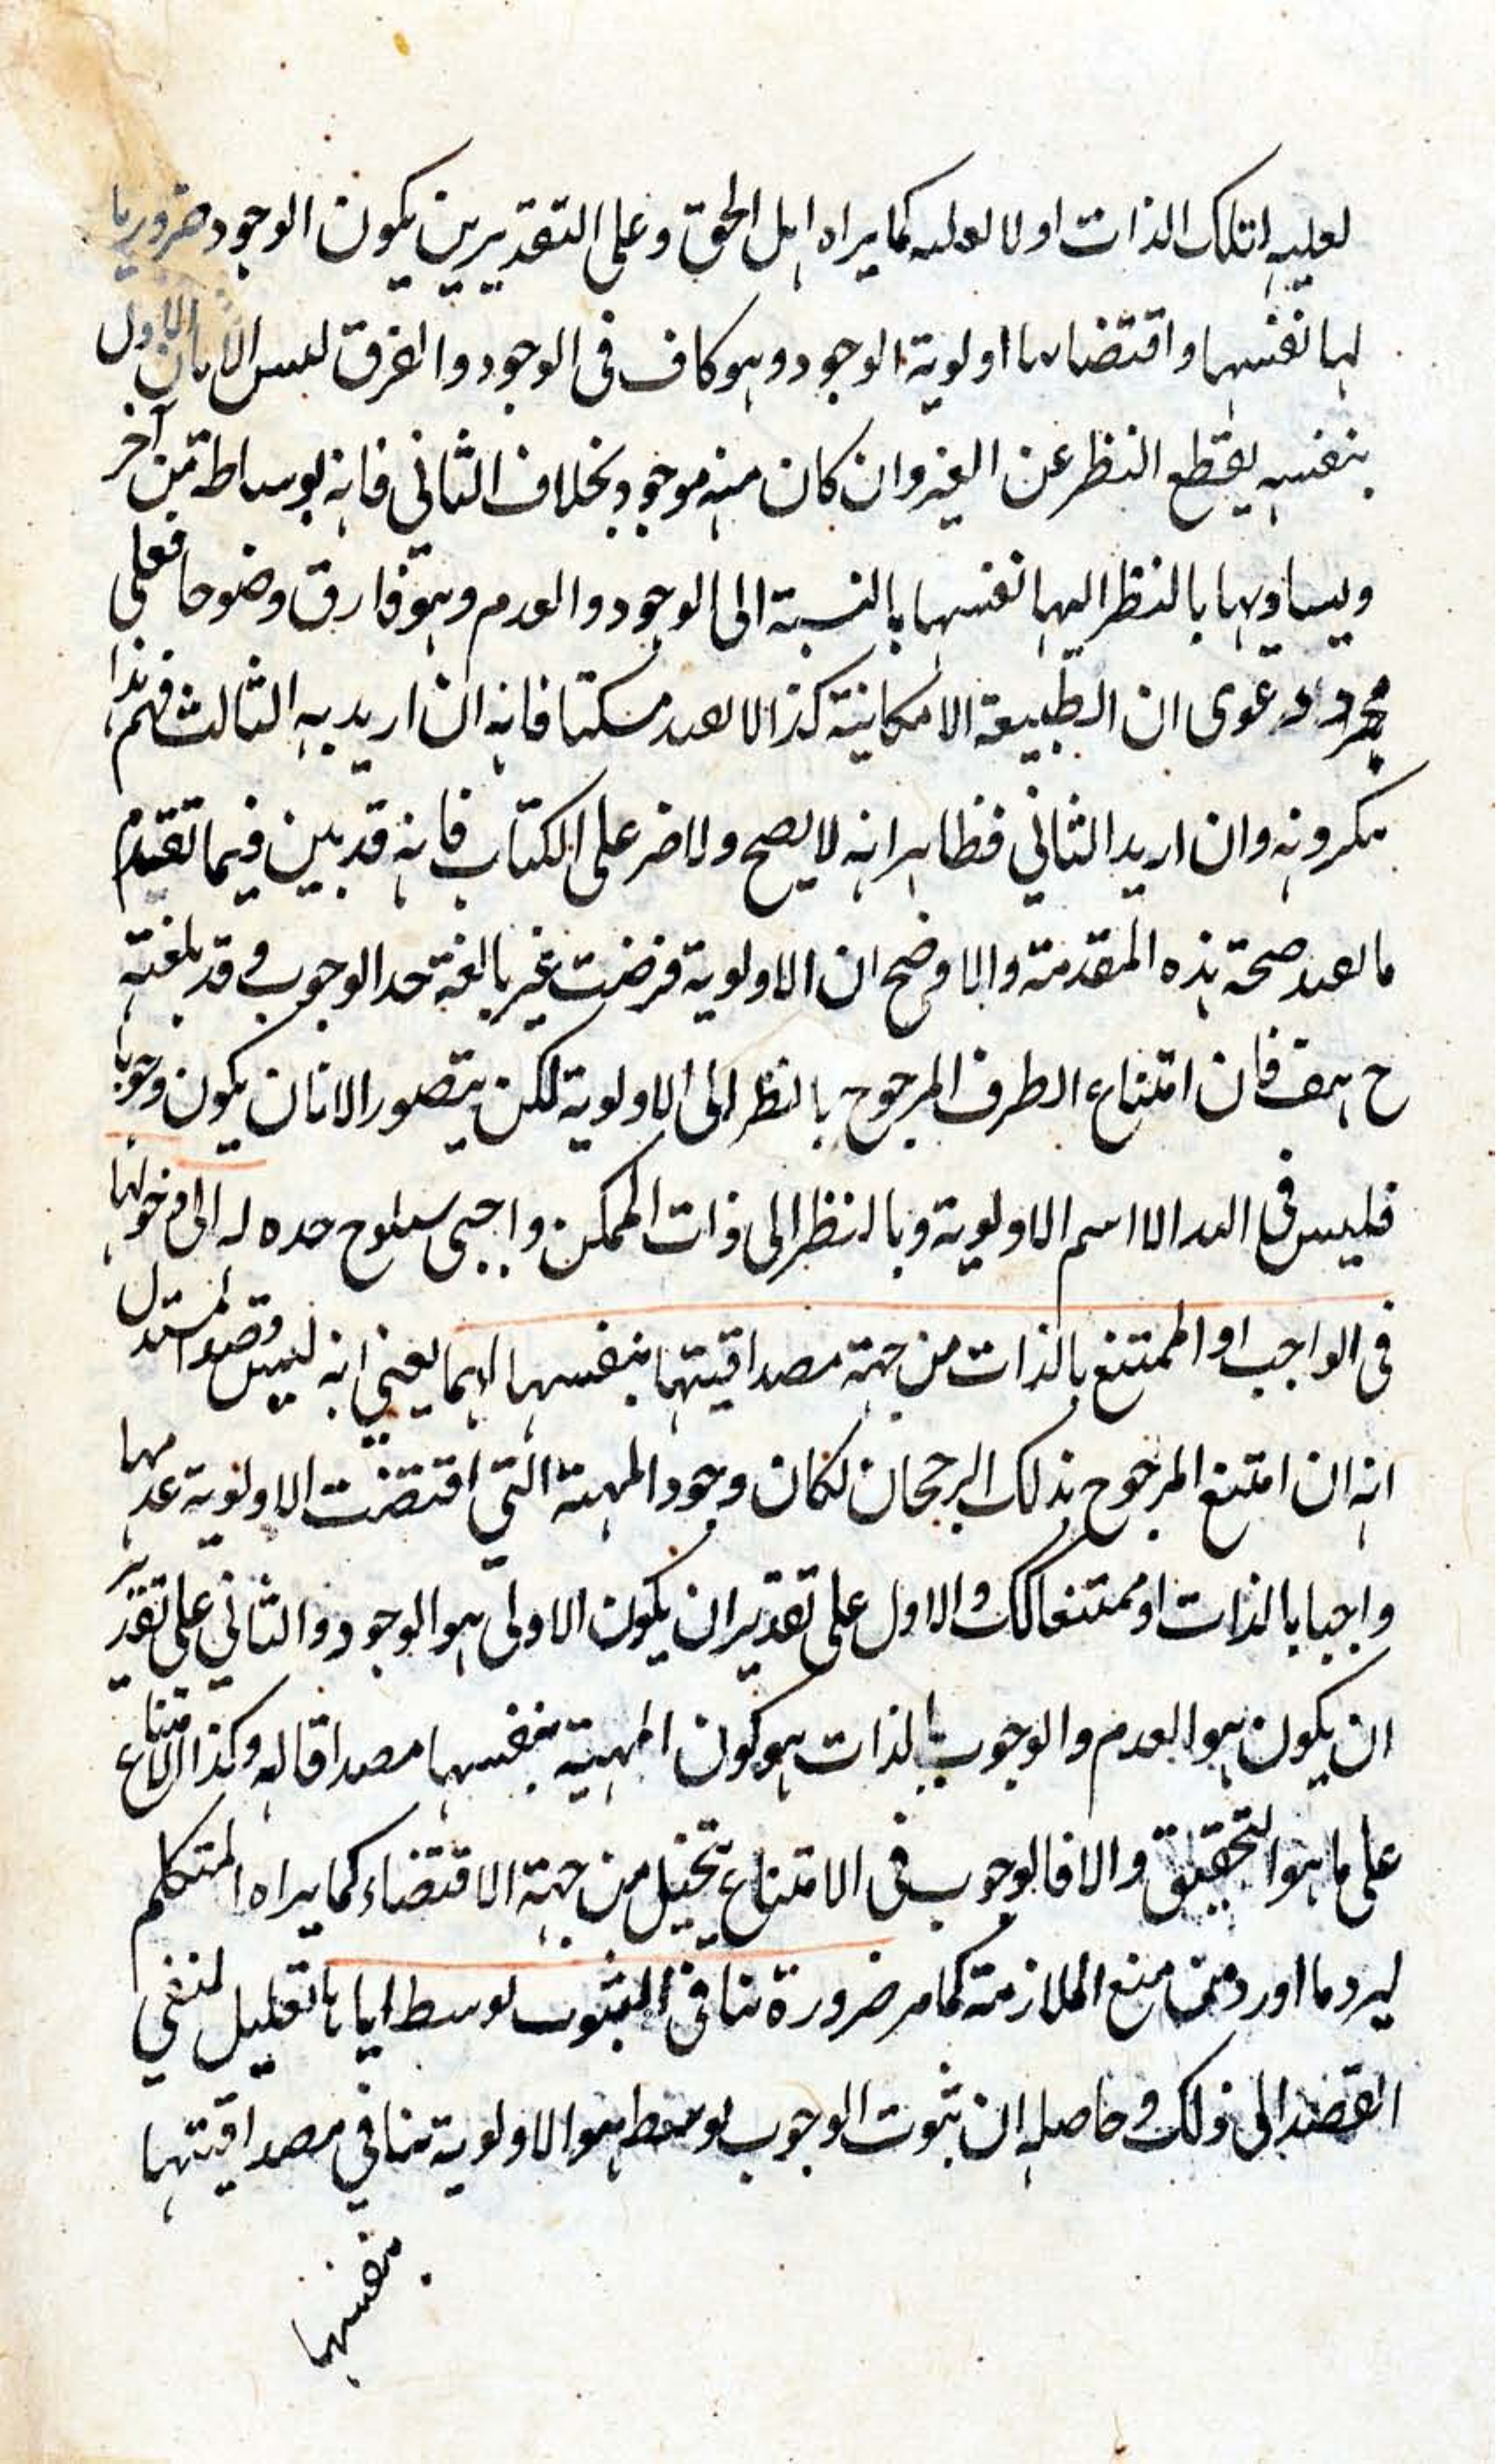 لعلية لتلك الذات اولا لعلية كما يراه اهل الحق وعلى التقديرين يكون الوجود ضروريا
لها نفسها واقتضاءها اولوية الوجود وهو كاف فى الوجود والفرق ليس الا بان الاول
بنفسه يقطع النظر عن الغير وان كان منه موجود بخلاف الثانى فانه بوساطة من آخر
ويساويها بالنظر اليها نفسها بالنسبة الى الوجود والعدم وهو فارق وضوحا فعلى هذا
مجرد دعوى ان الطبيعة الامكانية كذا لا يعد مسكتا فانه ان اريد به الثالث فهم
منكرونه وان اريد الثاني فظاهر انه لا يصح ولا ضر على الكتاب فانه قد بين فيما تقدم
ما يعد صحة هذه المقدمة والاوضح ان الاولوية فرضت غير بالغة حد الوجوب وقد بلغته
ح هف فان امتناع الطرف المرجوح بالنظر الى الاولوية لكن يتصور الا بان يكون وجوبا
فليس فى اليد الا اسم الاولوية وبالنظر الى ذات الممكن واجبى سيلوح حده له الى دخولها
فى الواجب او الممتنع بالذات من جهة مصداقيتها بنفسها لهما يعني انه ليس قصد المستدل
انه ان امتنع المرجوح بذلك الرجحان لكان وجود المهية التي اقتضت الاولوية عدمها
واجبا بالذات او ممتنعا كك والاول على تقدير ان يكون الاولى هو الوجود والثاني على تقدير
ان يكون هو العدم والوجوب بالذات هو كون المهية بنفسها مصداقا له وكذا الامتناع
على ما هو التحقيق والا فالوجوب فى الامتناع تخيل من جهة الاقتضاء كما يراه المتكلم
ليرد ما اورد من منع الملازمة كما مر ضرورة تنافى الثبوت بوسط اياها تعليل لنفي
القصد الى ذلك وحاصله ان ثبوت الوجوب بوسط هو الاولوية تنافي مصداقيتها
بنفسها